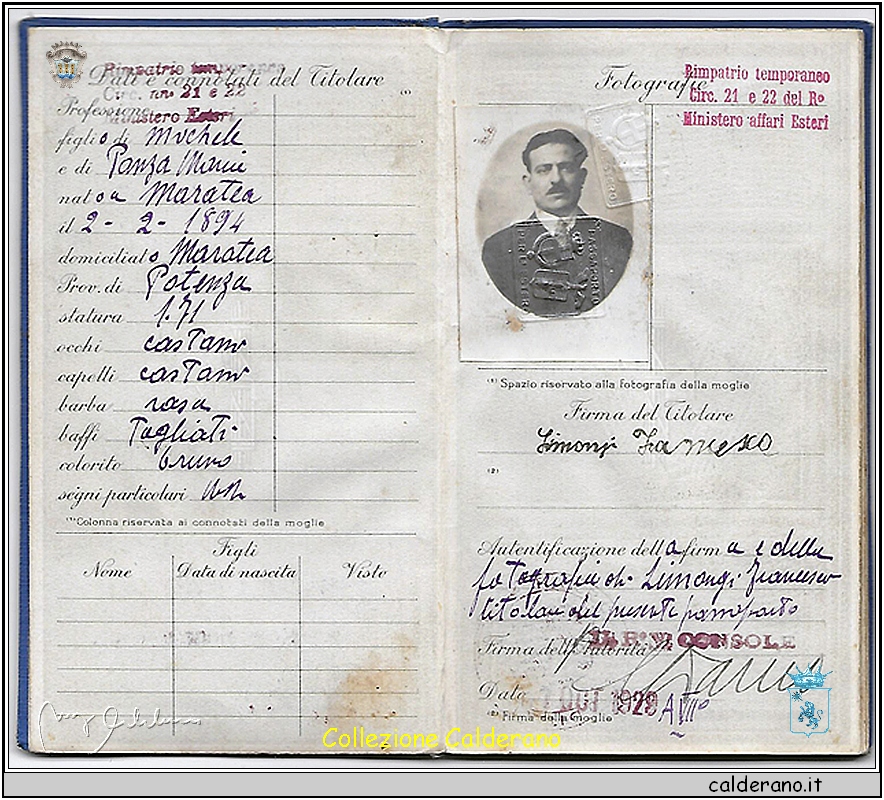 Rimpatrio temporaneo
Dati e connotati del Titolare
Circ. nro 21 e 22
(1)
Professione
Ministero Esteri
figlio di Michele
e di Panza Maria
nato a Maratea
il 2 - 2 - 1894
domiciliato Maratea
Prov. di Potenza
statura 1.71
occhi castano
capelli castano
barba rasa
baffi Tagliati
colorito bruno
segni particolari
(1) Colonna riservata ai connotati della moglie
Figli
Nome Data di nascita Visto
Fotografie
Rimpatrio temporaneo
Circ. 21 e 22 del Ro
Ministero affari Esteri
PASSAPORTO
PER L'ESTERO
(1) Spazio riservato alla fotografia della moglie
Firma del Titolare
Limongi Francesco
(2)
Autentificazione della firma e della
fotografia di Limongi Francesco
titolare del presente passaporto
IL Ro V. CONSOLE
Firma dell'Autorità
Data OUT 1929 A VIIIo
(2) Firma della moglie
Collezione Calderano
calderano.it